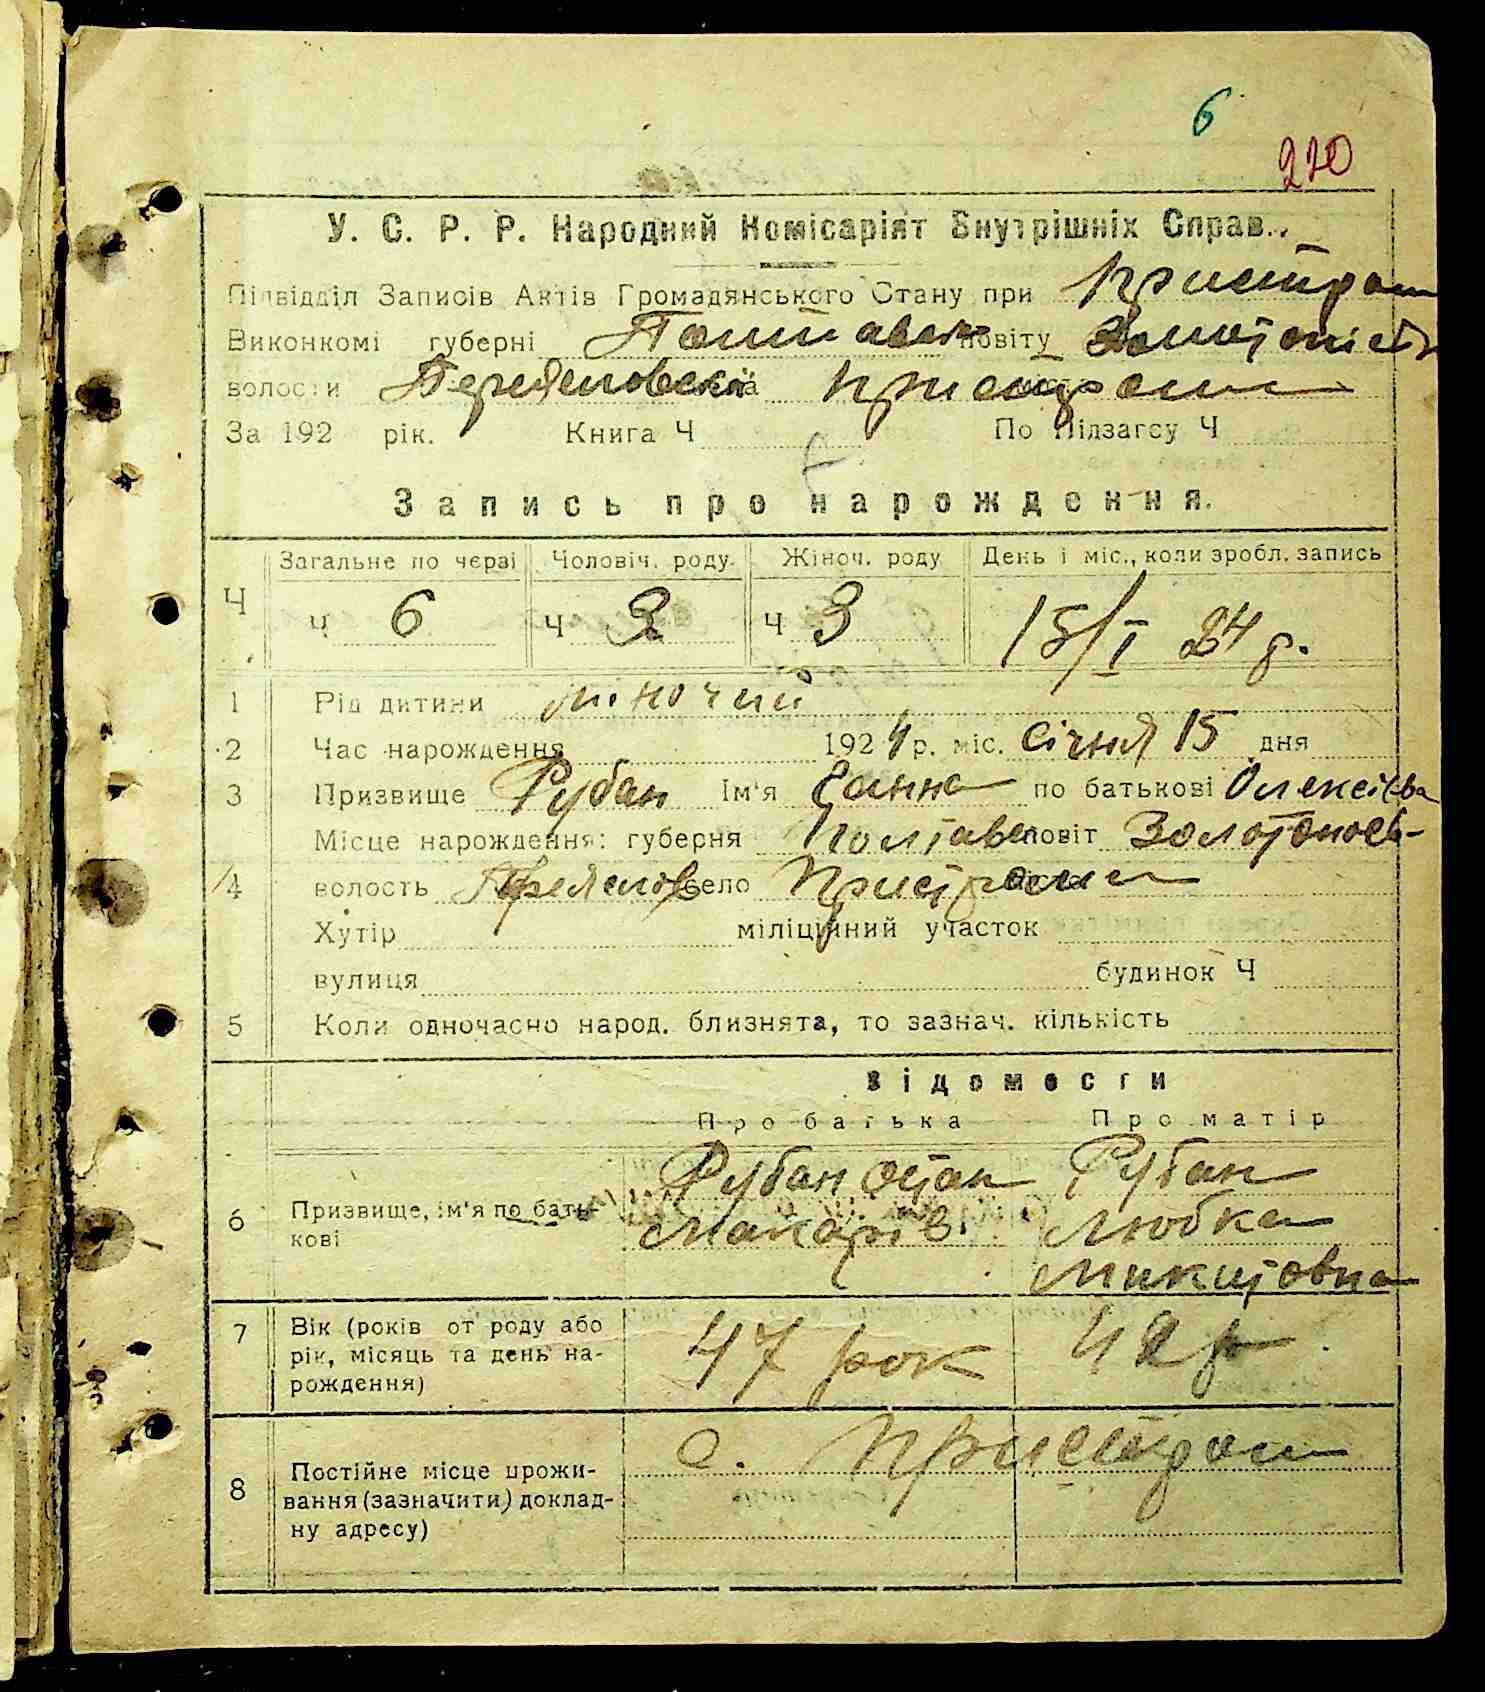 6
220
У. С. Р. Р. Народний Комісаріят Внутрішніх Справ.
Підвідділ Записів Актів Громадянського Стану при Пристром
Виконкомі губерні Полтавськ повіту Золотоніськ
волости Переяловської Пристроми
За 192 рік. Книга Ч По Підзагсу Ч
Запись про нарождення.
Ч Загальне по черзі Чоловіч. роду Жіноч. роду День і міс., коли зробл. запись
Ч 6 Ч 3 Ч 3 15/I 24 р.
1 Рід дитини жіночий
2 Час нарождення 1924 р. міс. Січня 15 дня
3 Призвище Рубан Ім'я Ганна по батькові Олексієва
Місце нарождення: губерня Полтавс повіт Золотонось-
4 волость Переяслов село Пристроми
Хутір міліційний участок
вулиця будинок Ч
5 Коли одночасно народ. близнята, то зазнач. кількість
Відомости
Про батька Про матір
6 Призвище, ім'я по батькові Рубан Рубан
Макарів. Любка
Микитовна
7 Вік (років от роду або рік, місяць та день нарождення) 47 рок 42 р
8 Постійне місце прожи-
вання (зазначити) доклад-
ну адресу) с. Пристром